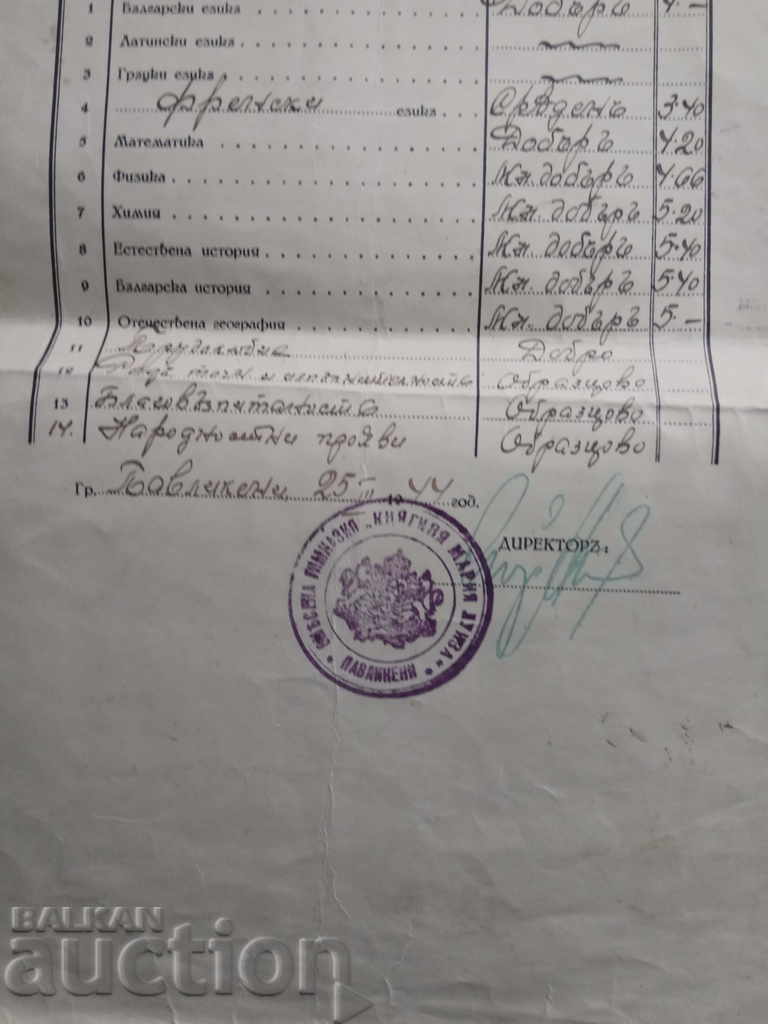 1 Български езикъ Добъръ 4.—
2 Латински езикъ
3 Гръцки езикъ
4 Френски езикъ Среденъ 3.40
5 Математика Добъръ 4.20
6 Физика Мн. добъръ 4.66
7 Химия Мн. добъръ 5.20
8 Естествена история Мн. добъръ 5.40
9 Българска история Мн. добъръ 5.40
10 Отечествена география Мн. добъръ 5.—
11 Трудолюбие Добро
12 и Образцово
13 Благовъзпитаность Образцово
14. Народностни прояви Образцово
Гр. Павликени 25 III 1944 год.
ДИРЕКТОРЪ:
ГИМНАЗИЯ „КНЯГИНЯ МАРИЯ ЛУИЗА“
ПАВЛИКЕНИ
BALKAN
auction